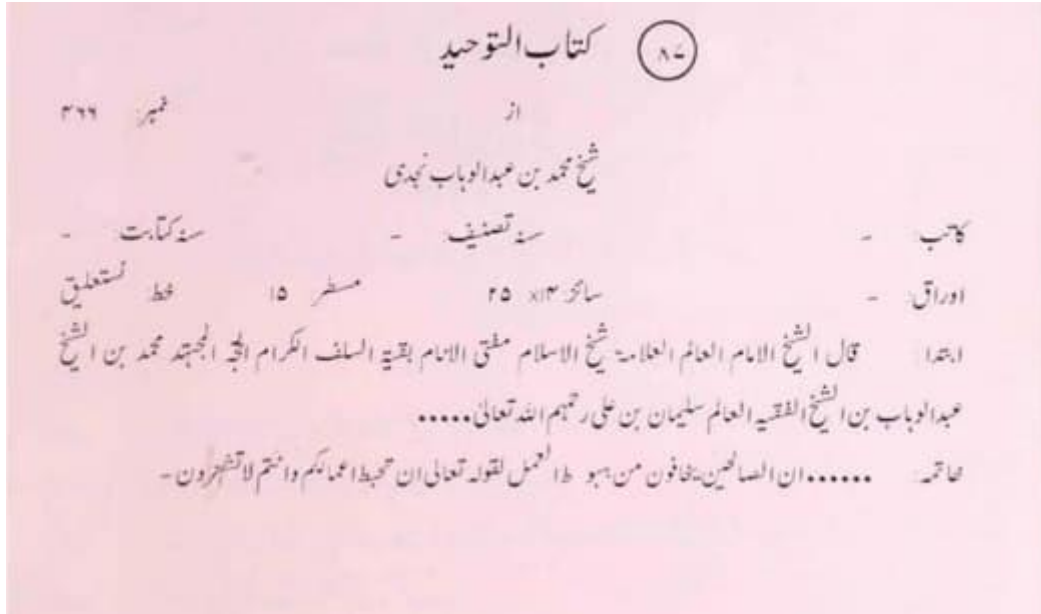 ۸۷ کتاب التوحید
از نمبر ۳۶۶
شیخ محمد بن عبدالوہاب نجدی
کاتب - سنہ تصنیف - سنہ کتابت -
اوراق - سائز ۱۴x ۲۵ مسطر ۱۵ خط نستعلیق
ابتدا قال الشیخ الامام العالم العلامۃ شیخ الاسلام مفتی الانام بقیۃ السلف الکرام الحجۃ المجتہد محمد بن الشیخ
عبدالوہاب بن الشیخ الفقیہ العالم سلیمان بن علی رحمہم اللہ تعالیٰ.....
خاتمہ ...... ان الصالحین یخافون من ہبو ط العمل لقولہ تعالی ان تحبط اعمالکم وانتم لا تشعرون -